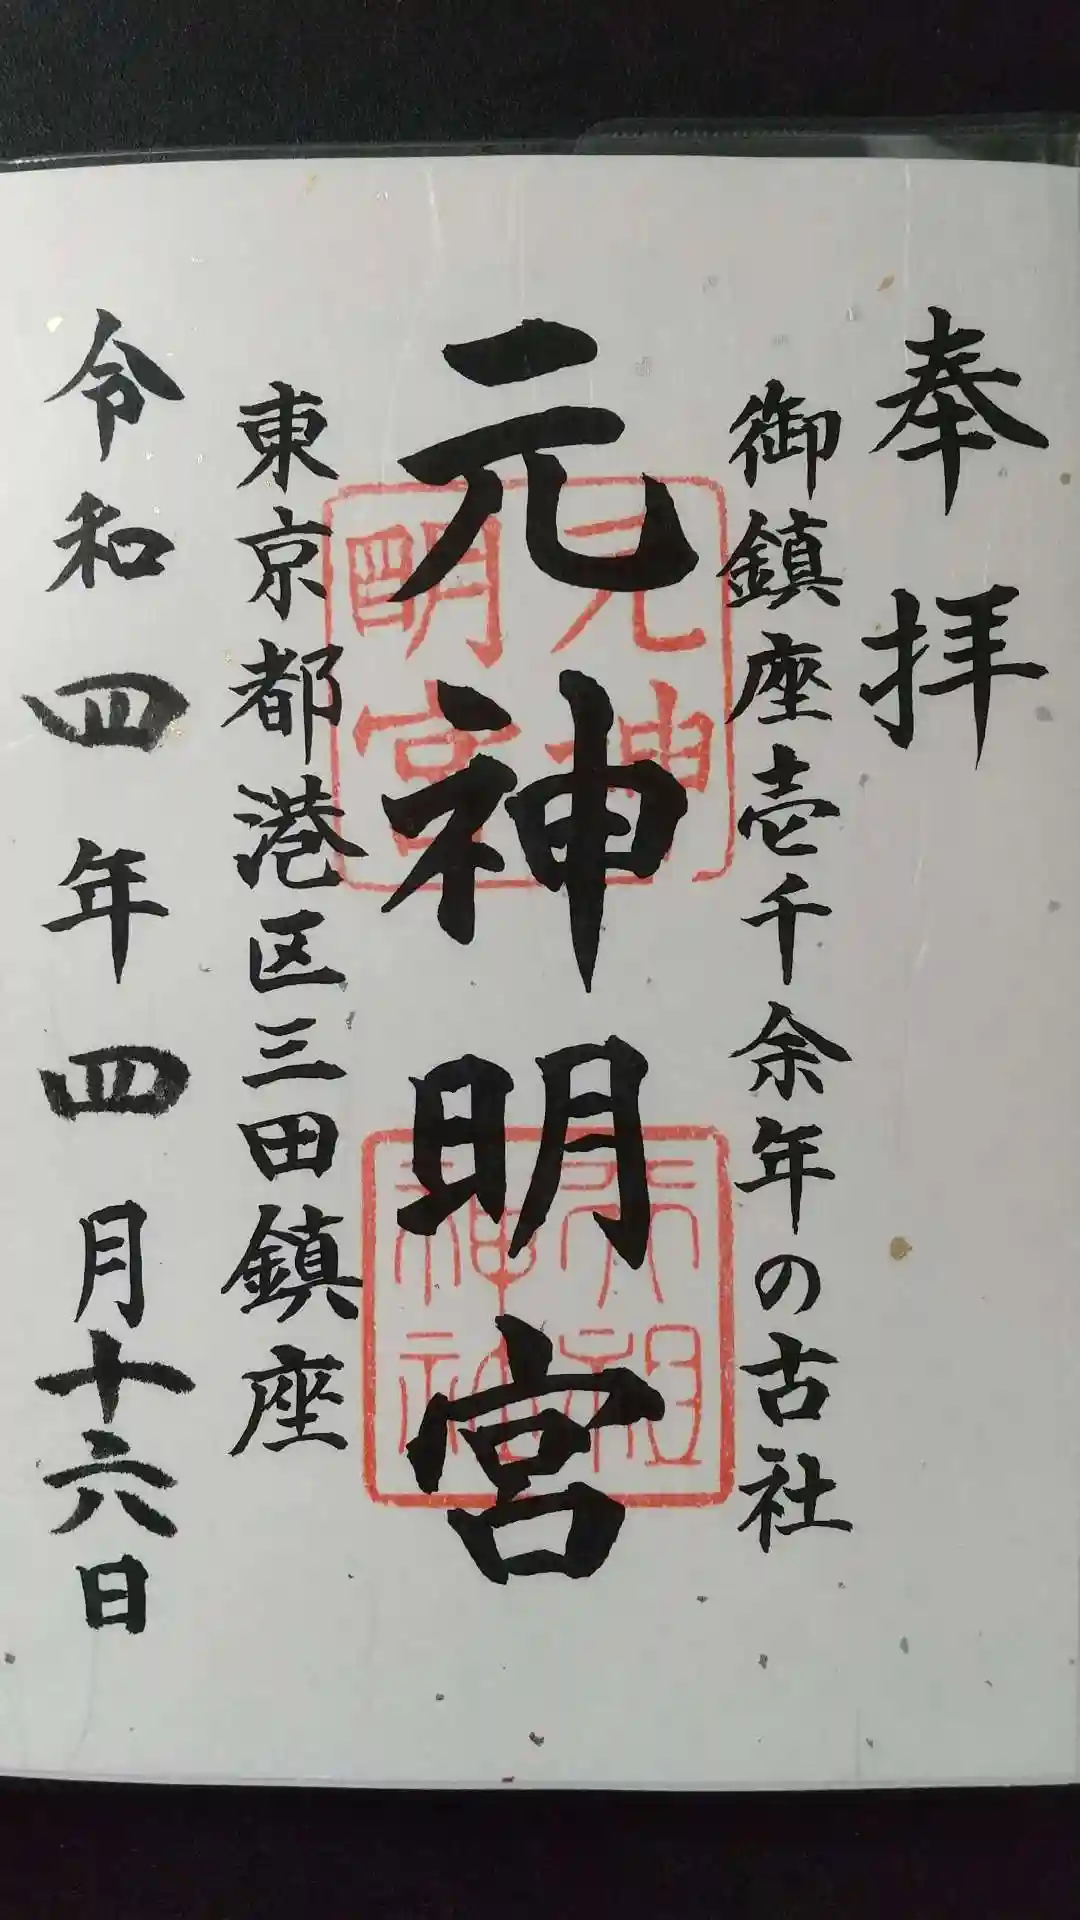 奉拝
御鎮座壱千余年の古社
元神明宮
東京都港区三田鎮座
令和四年四月十六日
元神
明宮
天祖
神社